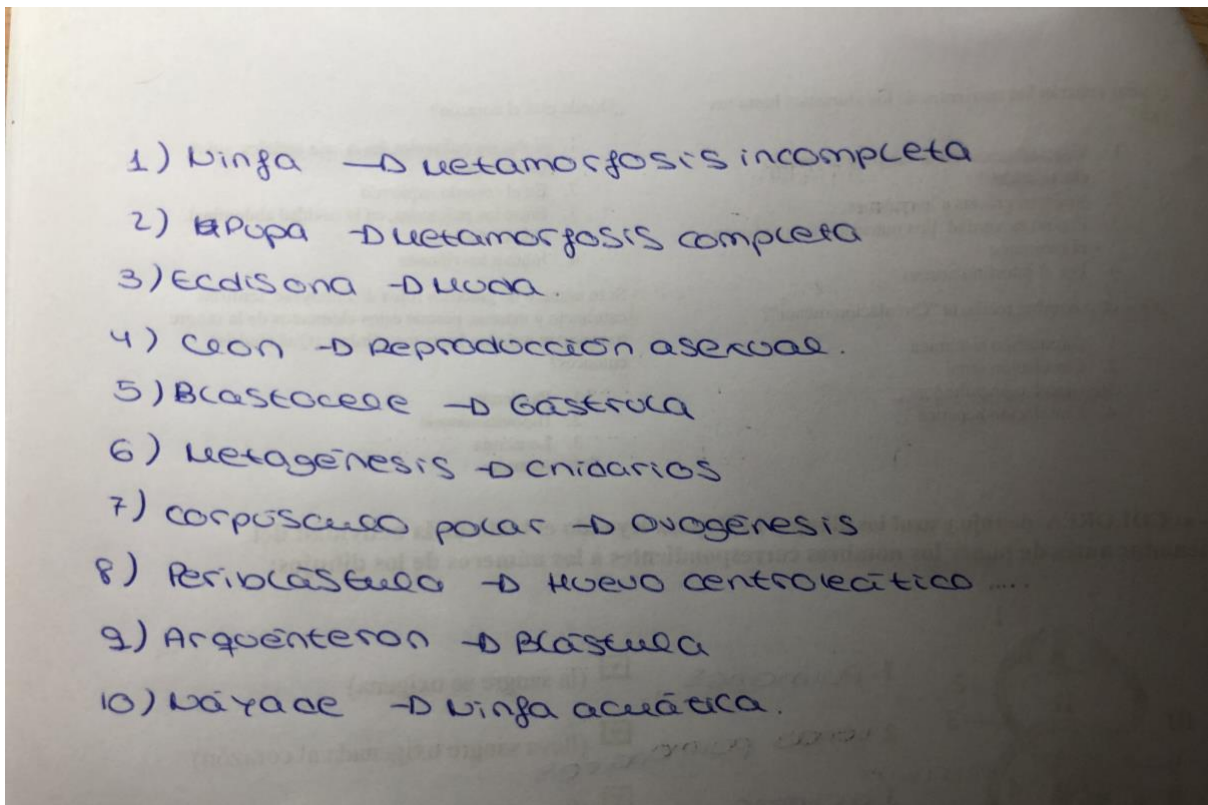 1) Ninfa → Metamorfosis incompleta
2) Pupa → Metamorfosis completa
3) Ecdisona → Muda
4) Clon → Reproducción asexual.
5) Blastocele → Gástrula
6) Metagénesis → Cnidarios
7) Corpúsculo polar → Ovogénesis
8) Periblástula → Huevo centrolecítico ....
9) Arquénteron → Blástula
10) Náyade → Ninfa acuática.